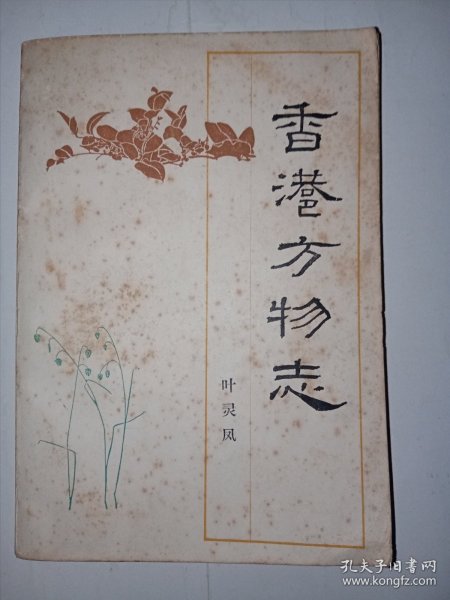 香港方物志
叶灵凤
孔夫子旧书网
www.kongfz.com